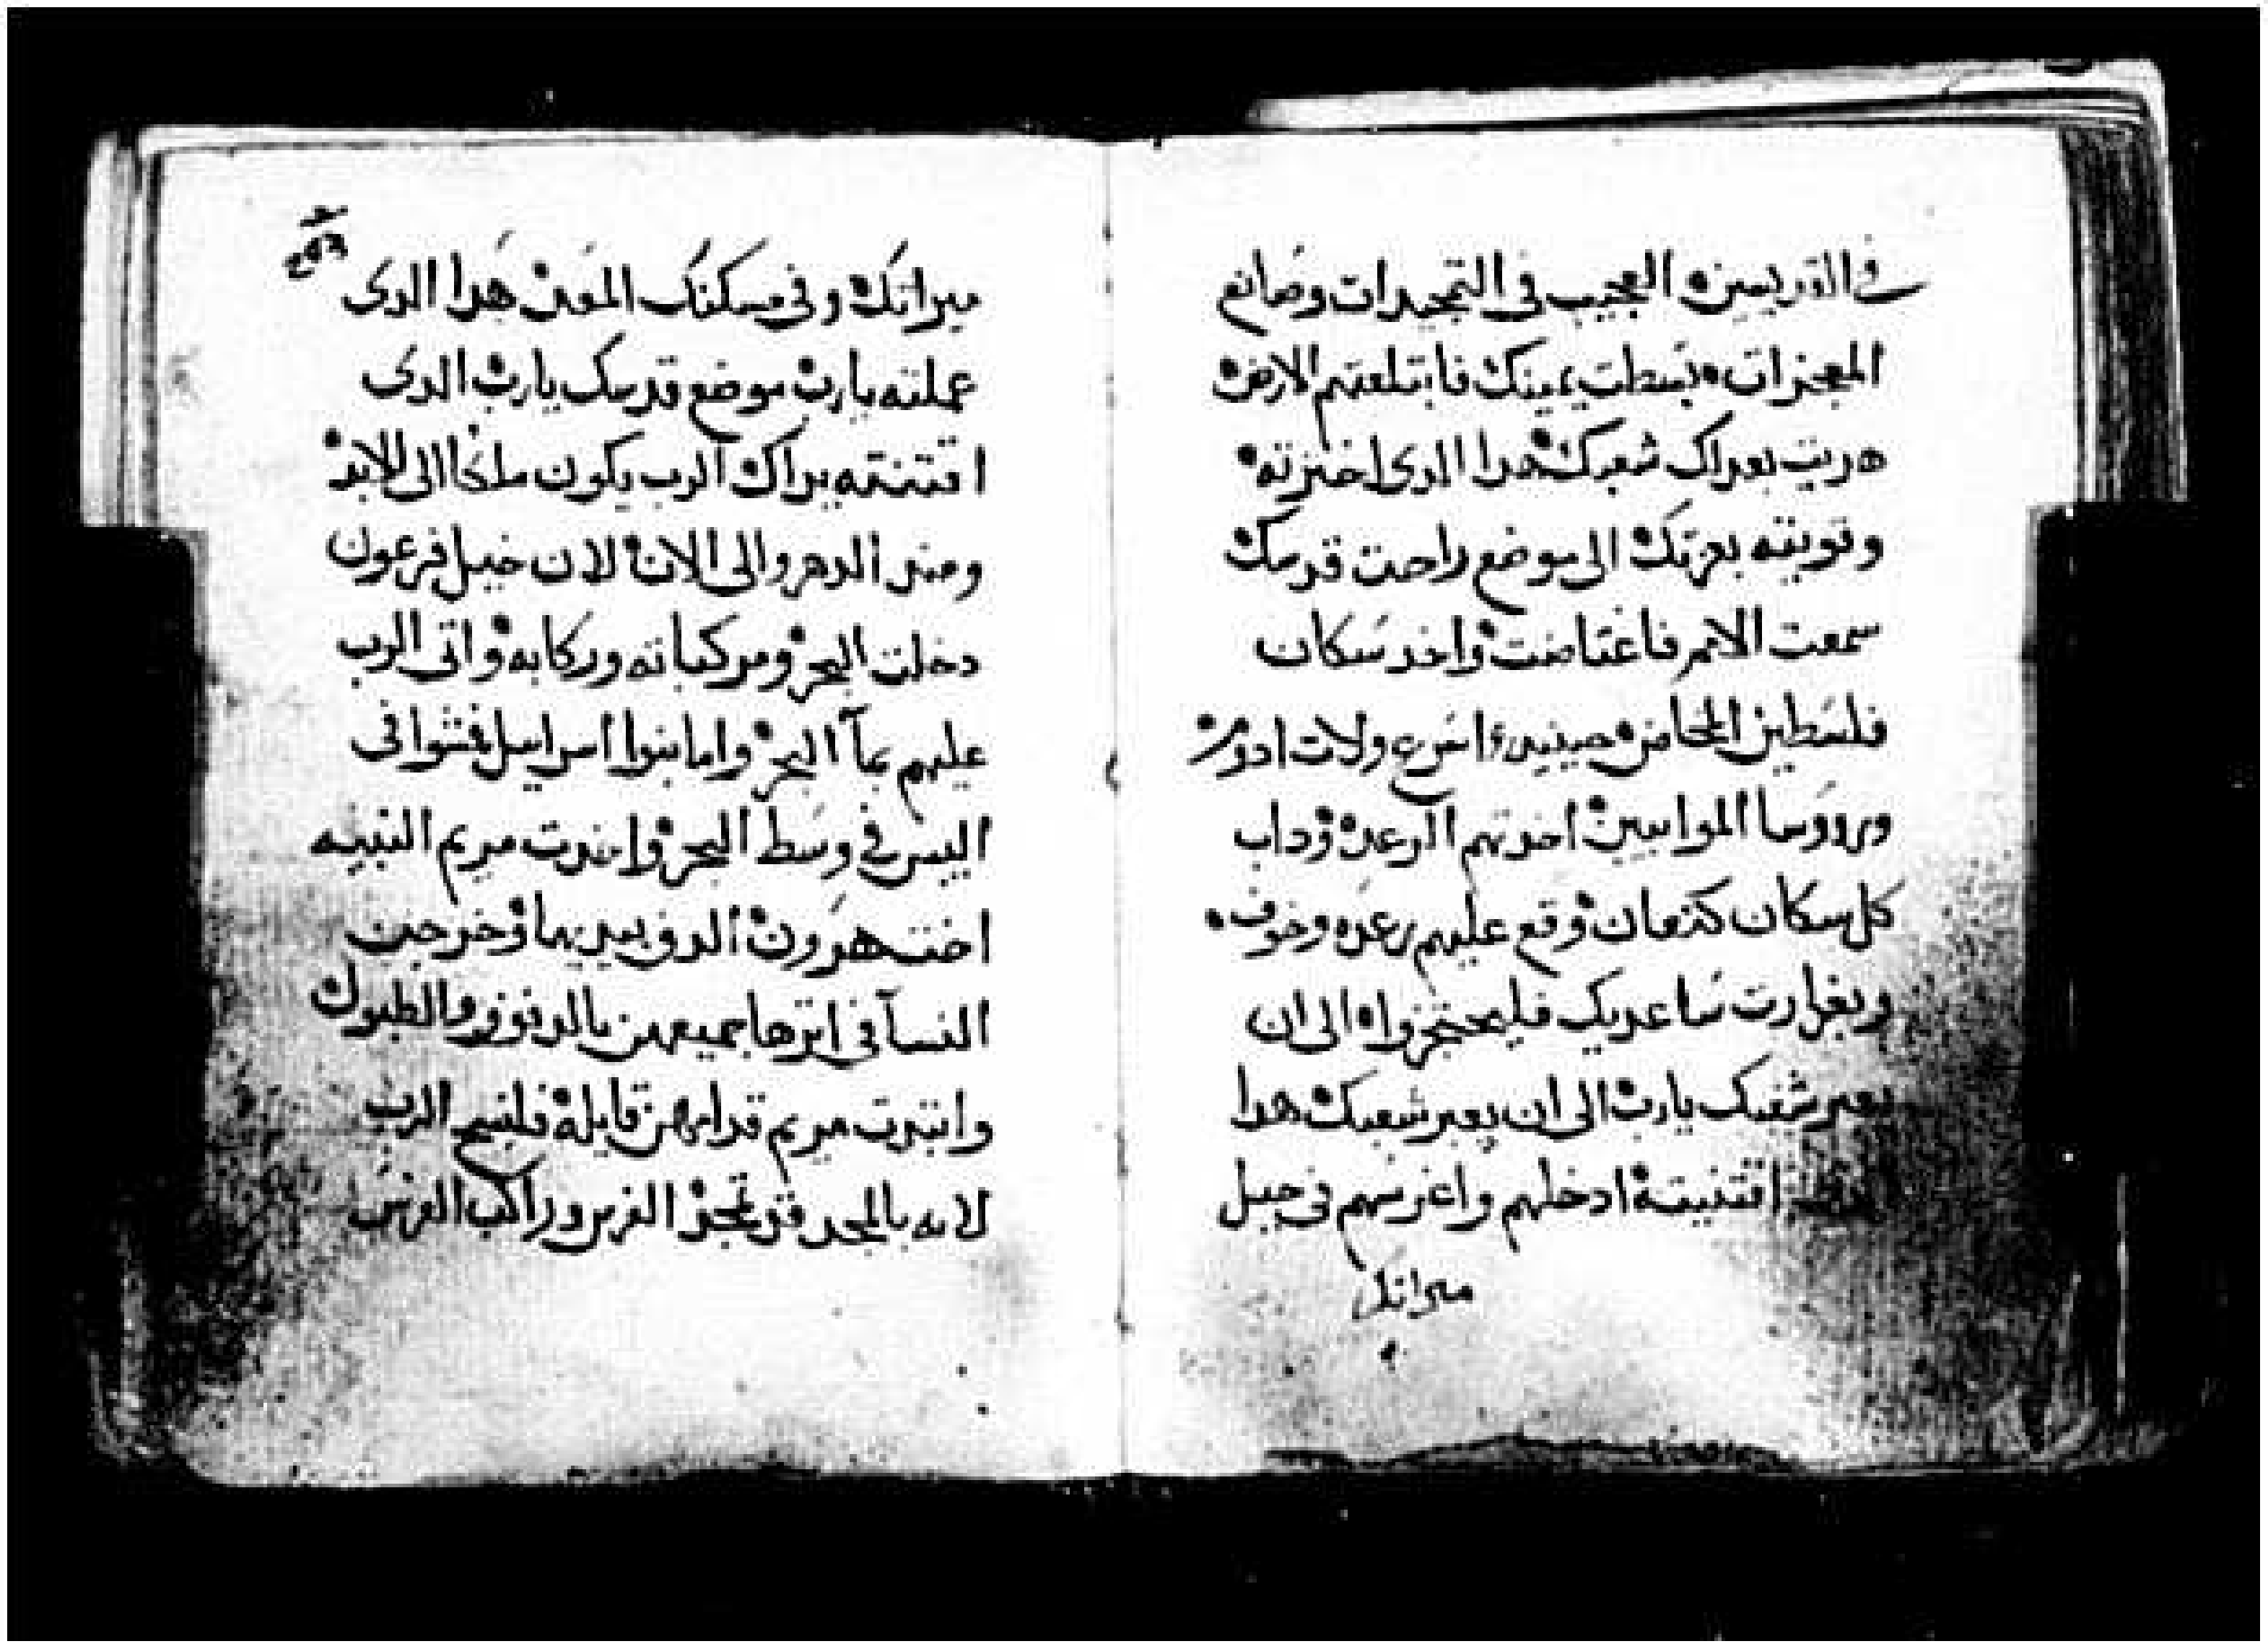 في القديسين العجيب في التمجيدات وصانع
المعجزات بسطت يمينك فابتلعتهم الارض
هديت بعدلك شعبك هدا الدى اخترته
وقويته بعزتك الى موضع راحت قدسك
سمعت الامم فاغتاضت واخد سكان
فلسطين المخاض حينيد اسرع ولات ادوم
وروسا الموابيين اخدتهم الرعده وداب
كل سكان كنعان وقع عليهم رعده وخوف
وبغزارت ساعديك فليحتجزوا الى ان
يعبر شعبك يارب الى ان يعبر شعبك هدا
اقتنيته ادخلهم واغرسهم في جبل
ميراتك
ميراتك وفي مسكنك المعد هدا الدى
عملته يارب موضع قدسك يارب الدى
اقتنته يداك الرب يكون ملكا الى الابد
ومند الدهر والى الان لان خيل فرعون
دخلت البحر ومركباته وركابه واتى الرب
عليهم بمآ البحر واما بنوا اسراييل فمشوا في
اليبس في وسط البحر واخدت مريم النبيه
اخت هرون الدف بيديها وخرجين
النسآ في اترها جميعهن بالدفوف والطبول
وابتدت مريم قدامهن قايله فلنسبح الرب
لانه بالمجد قد تمجد الفرس وراكب الفرس